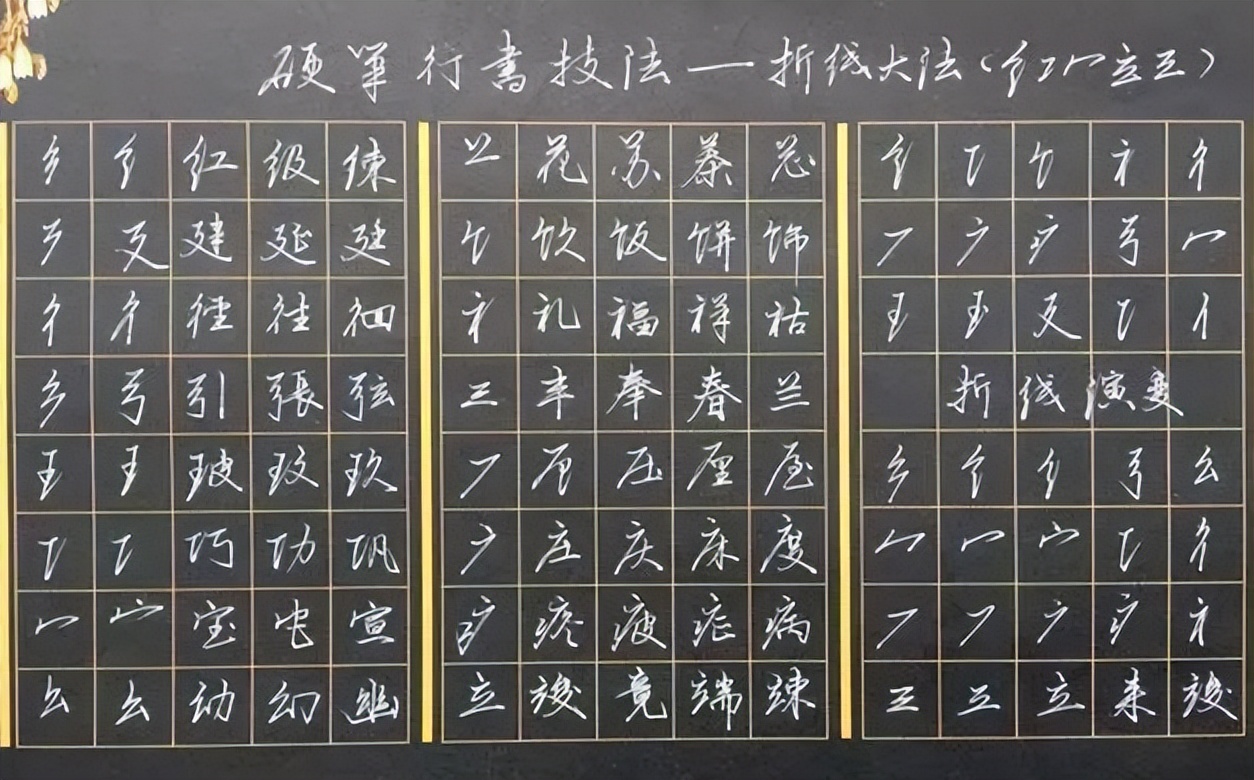 硬筆行書技法一折线大法(红冖立三)
纟 纟 红 级 练
廴 建 延 廷
彳 彳 径 往 徊
弓 引 張 弦
王 王 玻 玟 玖
工 工 巧 功 巩
冖 宀 宝 宅 宣
幺 幺 幼 幻 幽
艹 花 苏 茶 芯
饣 饮 饭 饼 饰
礻 礼 福 祥 祜
三 丰 奉 春 兰
厂 厚 压 厘
广 庄 庆 床 度
疒 疼 疲 症 病
立 竣 竟 端 竦
纟 工 饣 礻 彳
厂 广 疒 弓 冖
王 王 廴 工 亻
折线演变
纟 纟 纟 弓 幺
冖 冖 宀 工 彳
厂 厂 广 疒 礻
三 三 立 来 竣